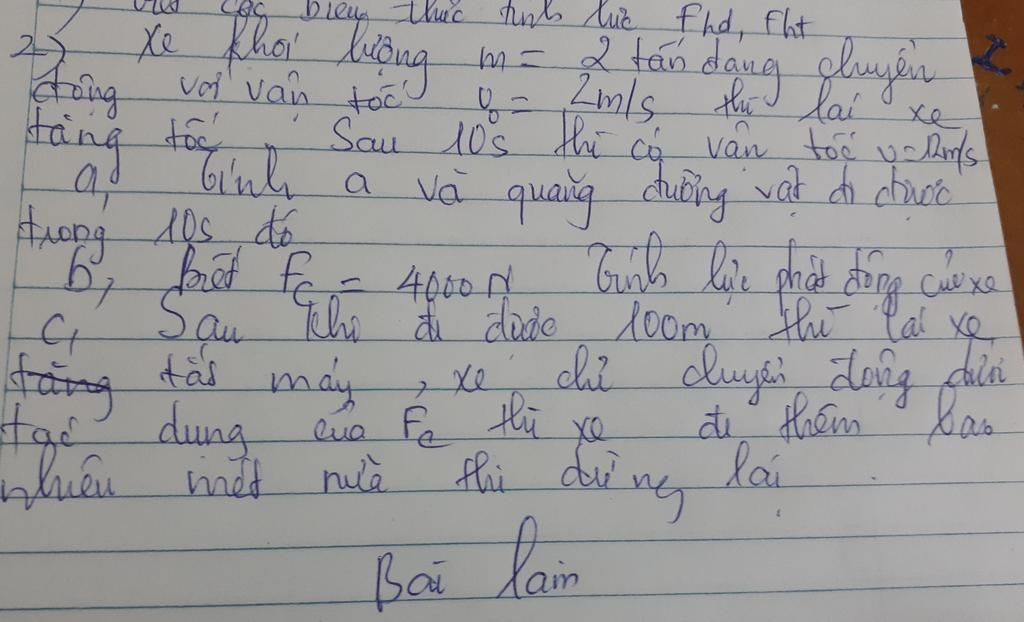 các biểu thức tính lực Fhd, Fht
2> Xe khối lượng m = 2 tấn đang chuyển
động với vận tốc v₀ = 2m/s thì lái xe
tăng tốc. Sau 10s thì có vận tốc v=12m/s
a, Tính a và quãng đường vật đi được
trong 10s đó
b, biết Fc = 4000N Tính lực phát động của xe
c, Sau khi đi được 100m thì lái xe
tắt máy, xe chỉ chuyển động dưới
tác dụng của Fc thì xe đi thêm bao
nhiêu mét nữa thì dừng lại.
Bài làm